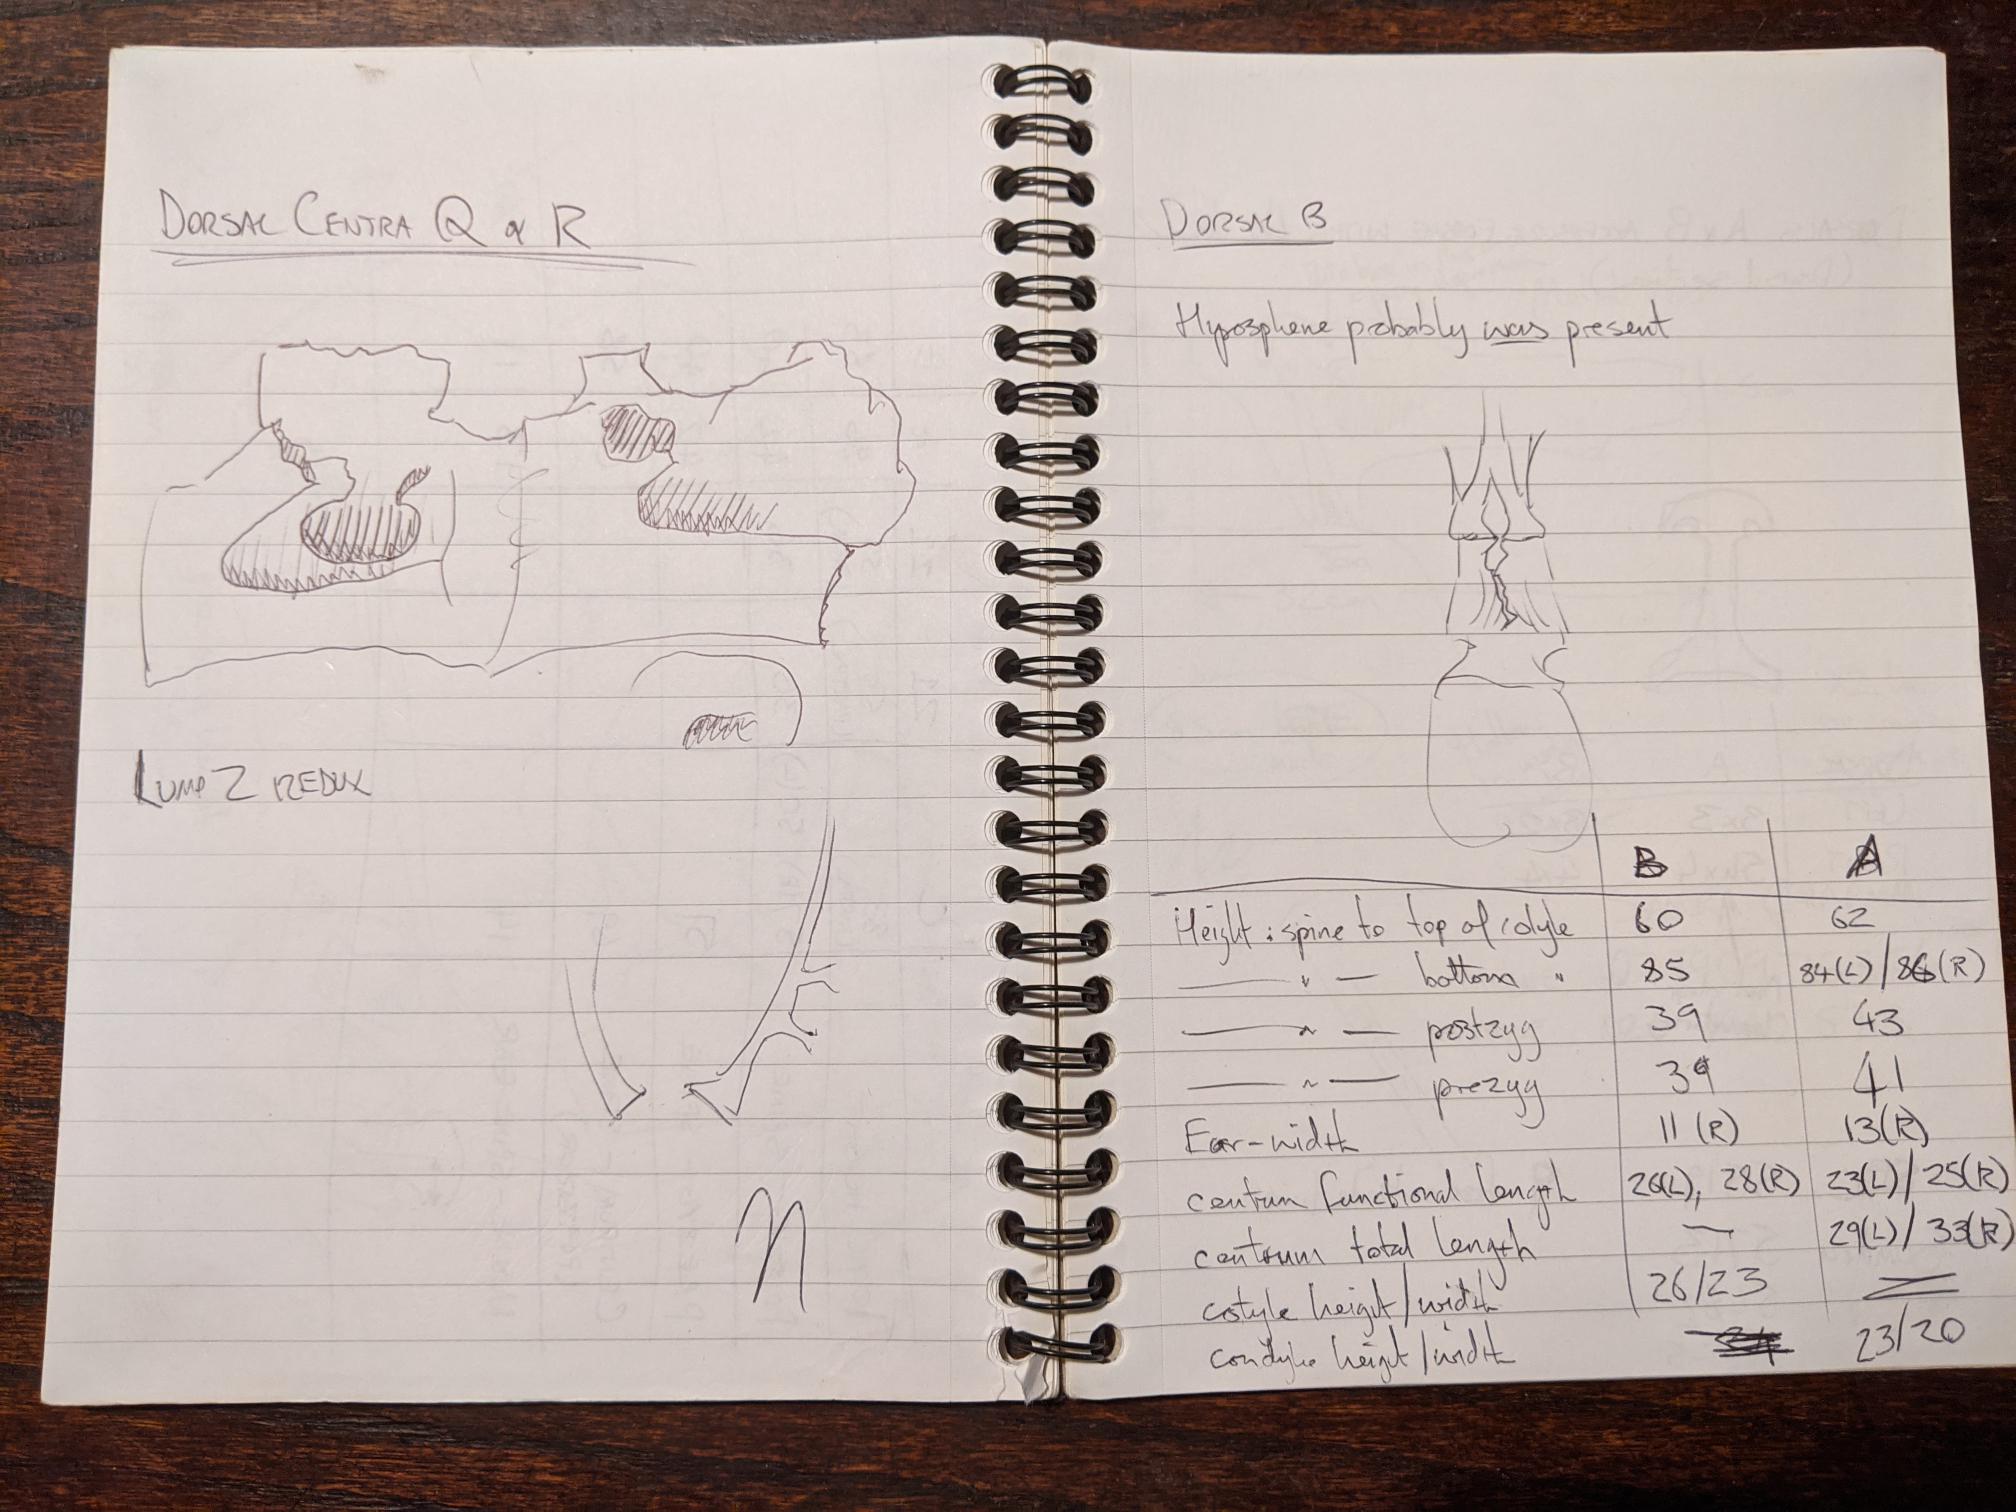 DORSAL CENTRA Q & R
LUMP Z REDUX
n
DORSAL B
Hyposphene probably was present
B A
Height: spine to top of cotyle 60 62
—— " — bottom " 85 84(L)/86(R)
—— " — postzyg 39 43
—— " — prezyg 39 41
Ear-width 11 (R) 13(R)
centrum functional length 26(L), 28(R) 23(L)/25(R)
centrum total length — 29(L)/33(R)
cotyle height/width 26/23 —
condyle height/width 23/20